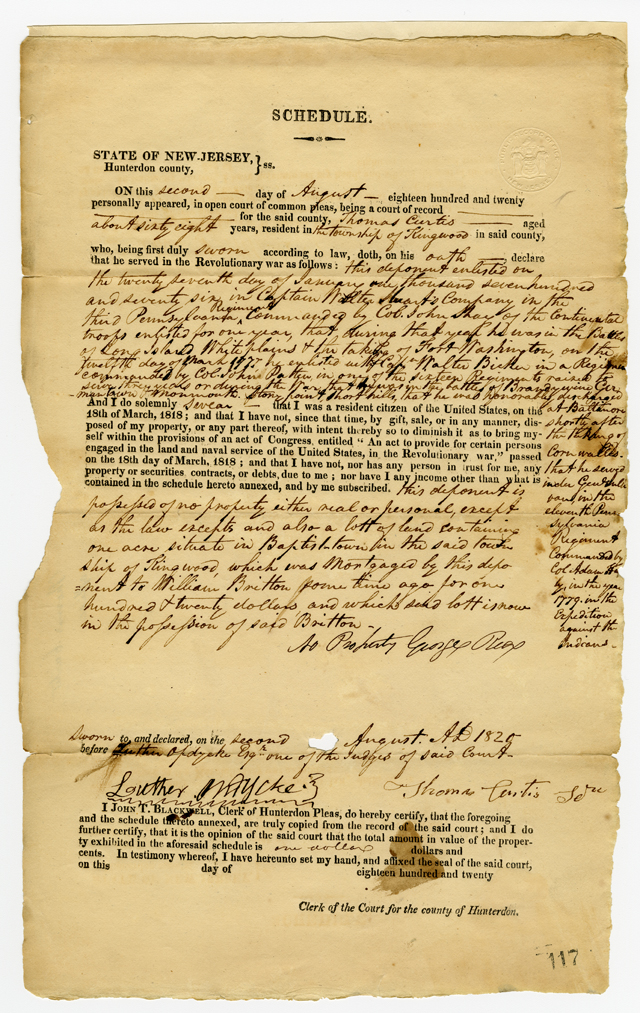 SCHEDULE.
STATE OF NEW-JERSEY,
Hunterdon county, } ss.
ON this second day of August eighteen hundred and twenty
personally appeared, in open court of common pleas, being a court of record
for the said county, Thomas Curtis aged
about sixty eight years, resident in the township of Kingwood in said county,
who, being first duly sworn according to law, doth, on his oath declare
that he served in the Revolutionary war as follows: this deponent enlisted on
the twenty seventh day of January one thousand seven hundred
and seventy six in Captain Company in the
third Pennsylvania Regiment Commanded by Col. John Shee of the Continental
troops enlisted for one year, that during that year he was in the Battles
of Long Island White plains & the taking of Fort Washington, on the
twelfth day of March 1777 he enlisted with Walter in a Regiment
commanded by Col. John Patton in one of the sixteen Regiments raised to
serve three years or during the War, that he was in the battles of Brandywine Ger
-mantown Monmouth Stony point Short hills, that he was honorably discharged
And I do solemnly swear that I was a resident citizen of the United States, on the
18th of March, 1818; and that I have not, since that time, by gift, sale, or in any manner, dis-
posed of my property, or any part thereof, with intent thereby so to diminish it as to bring my-
self within the provisions of an act of Congress, entitled "An act to provide for certain persons
engaged in the land and naval service of the United States, in the Revolutionary war," passed
on the 18th day of March, 1818; and that I have not, nor has any person in trust for me, any
property or securities, contracts, or debts, due to me; nor have I any income other than what is
contained in the schedule hereto annexed, and by me subscribed. this deponent is
possessed of no property either real or personal, except
as the law excepts and also a lott of land containing
one acre situate in Baptist-town in the said town
ship of Kingwood, which was Mortgaged by this depo
=nent to William Britton some time ago for one
hundred & twenty dollars and which said lott is now
in the possession of said Britton -
at
shortly after
the taking of
Cornwallis.
that he served
under General
in the
eleventh Penn
sylvania
Regiment
Commanded by
Col. Adam
in the year
1779. in the
Expedition
against the
Indians -
No Property George Rex
sworn to, and declared, on the second August. AD 1820
before Luther Opdycke Esqr. one of the Judges of said Court -
Luther Opdycke
Thomas Curtis
I JOHN T. BLACKWELL, Clerk of Hunterdon Pleas, do hereby certify, that the foregoing
and the schedule thereto annexed, are truly copied from the record of the said court; and I do
further certify, that it is the opinion of the said court that the total amount in value of the proper-
ty exhibited in the aforesaid schedule is one dollar dollars and
cents. In testimony whereof, I have hereunto set my hand, and affixed the seal of the said court,
on this day of eighteen hundred and twenty
Clerk of the Court for the county of Hunterdon.
117